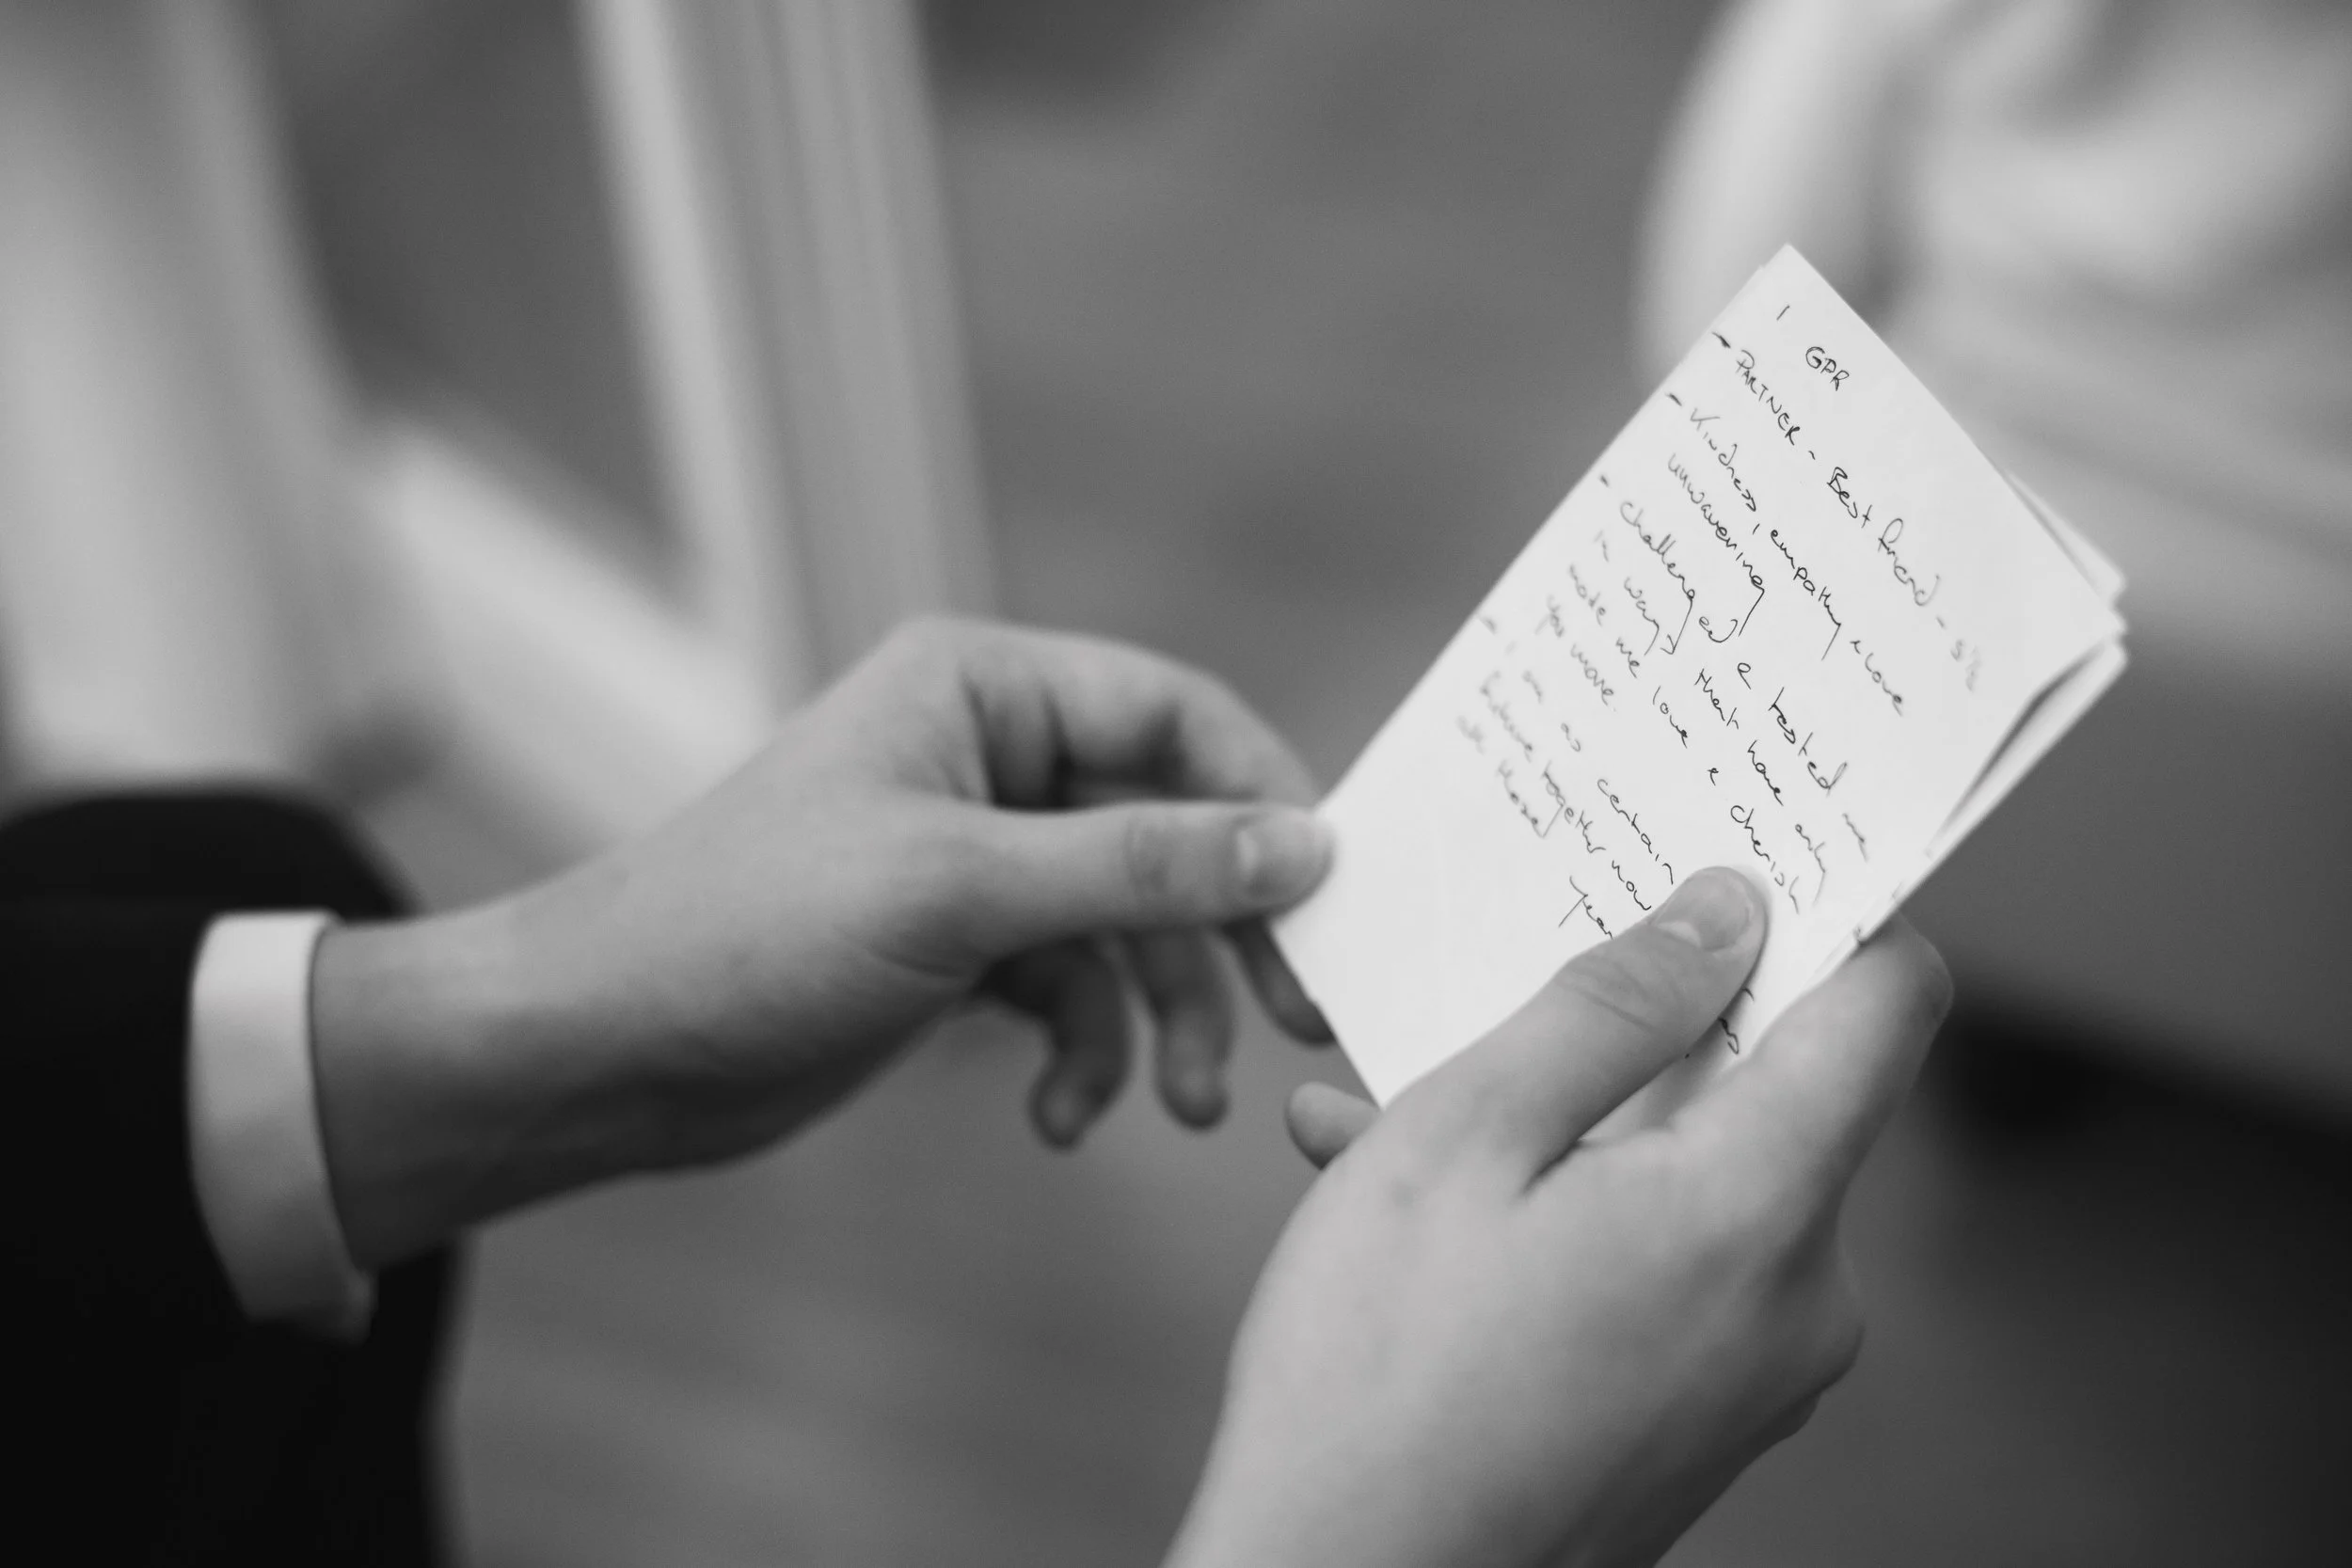 1 GPR
- PARTNER - Best friend -
- Kindness, empathy & love
unwavering
- Challenged & tested me
in ways that have only
made me love & cherish
you more.
- I am as certain
future together now
all those years